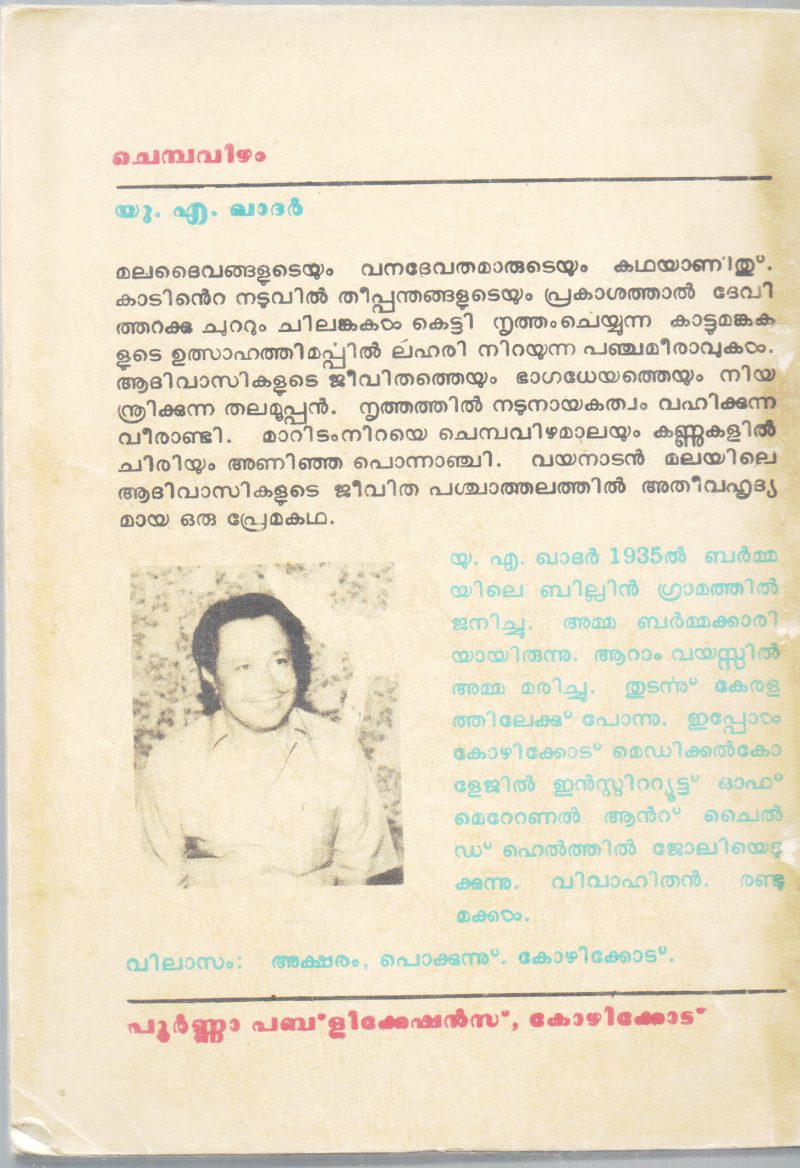 ചെമ്പവിഴം
യു. എ. ഖാദർ
മലദൈവങ്ങളുടെയും വനദേവതമാരുടെയും കഥയാണിതു്.
കാടിൻെറ നടുവിൽ തീപ്പന്തങ്ങളുടെയും പ്രകാശത്താൽ ദേവി
ത്തറക്കു ചുററും ചിലങ്കകൾ കെട്ടി നൃത്തംചെയ്യുന്ന കാട്ടുമങ്കക
ളുടെ ഉത്സാഹത്തിമർപ്പിൽ ലഹരി നിറയുന്ന പഞ്ചമീരാവുകൾ.
ആദിവാസികളുടെ ജീവിതത്തെയും ഭാഗധേയത്തെയും നിയ
ന്ത്രിക്കുന്ന തലമൂപ്പൻ. നൃത്തത്തിൽ നടുനായകത്വം വഹിക്കുന്ന
വീരാണ്ടി. മാറിടംനിറയെ ചെമ്പവിഴമാലയും കണ്ണുകളിൽ
ചിരിയും അണിഞ്ഞ പൊന്നാഞ്ചി. വയനാടൻ മലയിലെ
ആദിവാസികളുടെ ജീവിത പശ്ചാത്തലത്തിൽ അതീവഹൃദ്യ
മായ ഒരു പ്രേമകഥ.
യു. എ. ഖാദർ 1935ൽ ബർമ്മ
യിലെ ബില്ലിൻ ഗ്രാമത്തിൽ
ജനിച്ചു. അമ്മ ബർമ്മക്കാരി
യായിരുന്നു. ആറാം വയസ്സിൽ
അമ്മ മരിച്ചു. തുടർന്നു് കേരള
ത്തിലേക്കു് പോന്നു. ഇപ്പോൾ
കോഴിക്കോട് മെഡിക്കൽകോ
ളേജിൽ ഇൻസ്റ്റിററ്യൂട്ട് ഓഫ്
മെറേറണൽ ആൻറ് ചൈൽ
ഡ് ഹെൽത്തിൽ ജോലിയെടു
ക്കുന്നു. വിവാഹിതൻ. രണ്ടു
മക്കൾ.
വിലാസം: അക്ഷരം, പൊക്കുന്നു്. കോഴിക്കോട്.
പൂർണ്ണാ പബ്ളിക്കേഷൻസ്, കോഴിക്കോട്